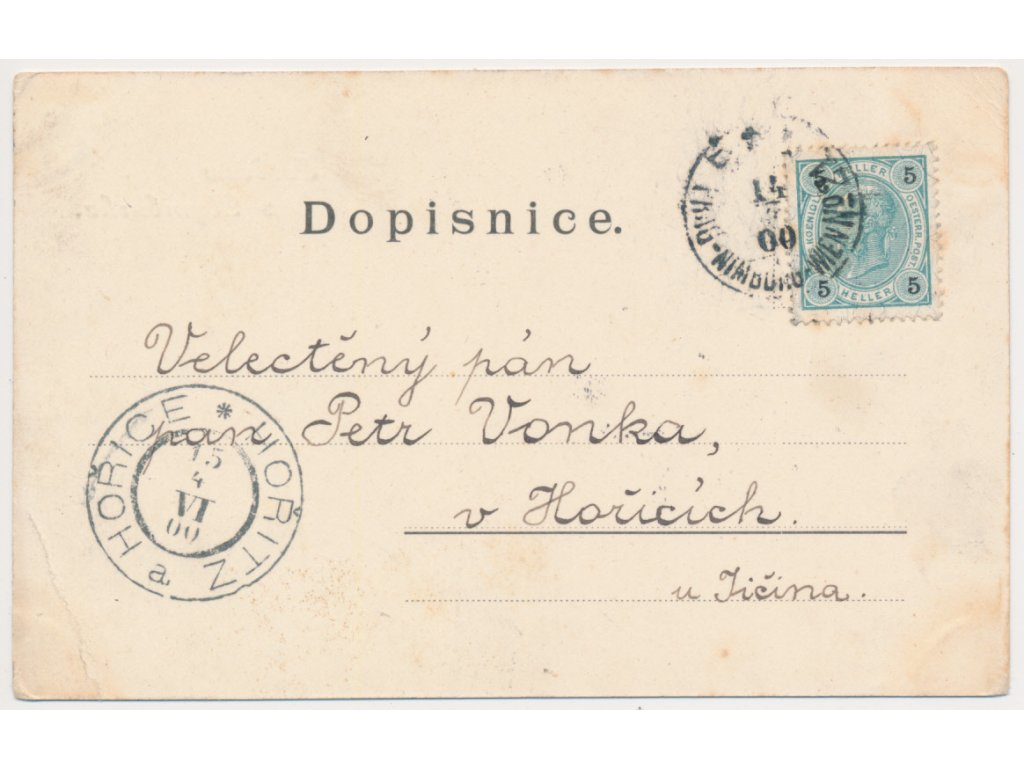 Dopisnice.
14
00
-NIMBURG-WIEN N.W.
5 HELLER 5
OESTERR. POST.
5 HELLER 5
Velectěný pán
pan Petr Vonka,
v Hořicích.
u Jičína.
HOŘICE * HOŘITZ
15
4
VI
00
a